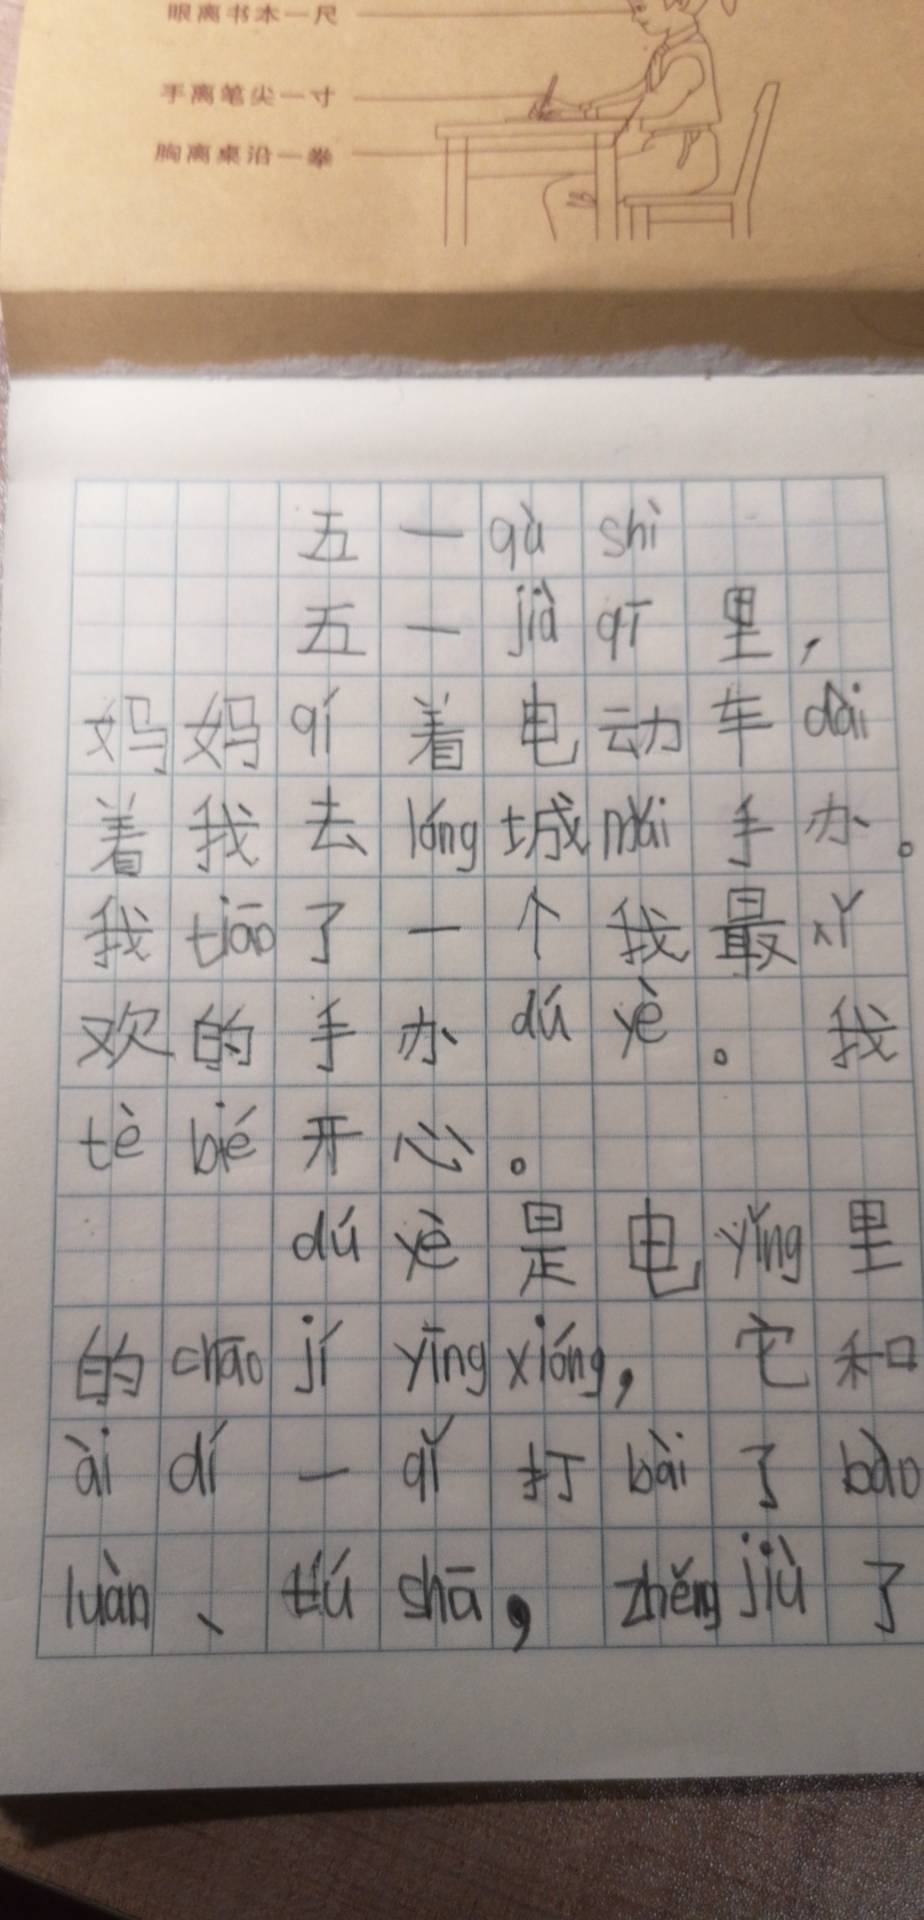 眼离书本一尺
手离笔尖一寸
胸离桌沿一拳
五一qù shì
五一jià qī里，
妈妈qí着电动车dài
着我去lóng城mǎi手办。
我tiāo了一个我最xǐ
欢的手办dú yè。我
tè bié开心。
dú yè是电yǐng里
的chāo jí yīng xióng，它和
ài dí一qǐ打bài了bào
luàn、tú shā，zhěng jiù了